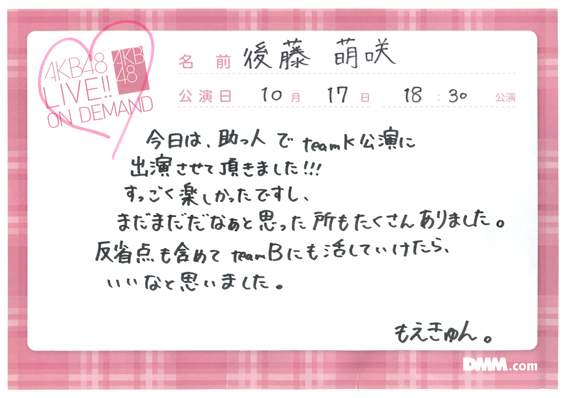 AKB48
LIVE!!
ON DEMAND
AKB
48
名 前 後藤 萌咲
公演日 10月 17日 18:30 公演
今日は、助っ人で teamK公演に
出演させて頂きました!!!
すっごく楽しかったですし、
まだまだだなぁと思った所もたくさんありました。
反省点も含めて teamBにも活していけたら、
いいなと思いました。
もえきゅん。
DMM.com